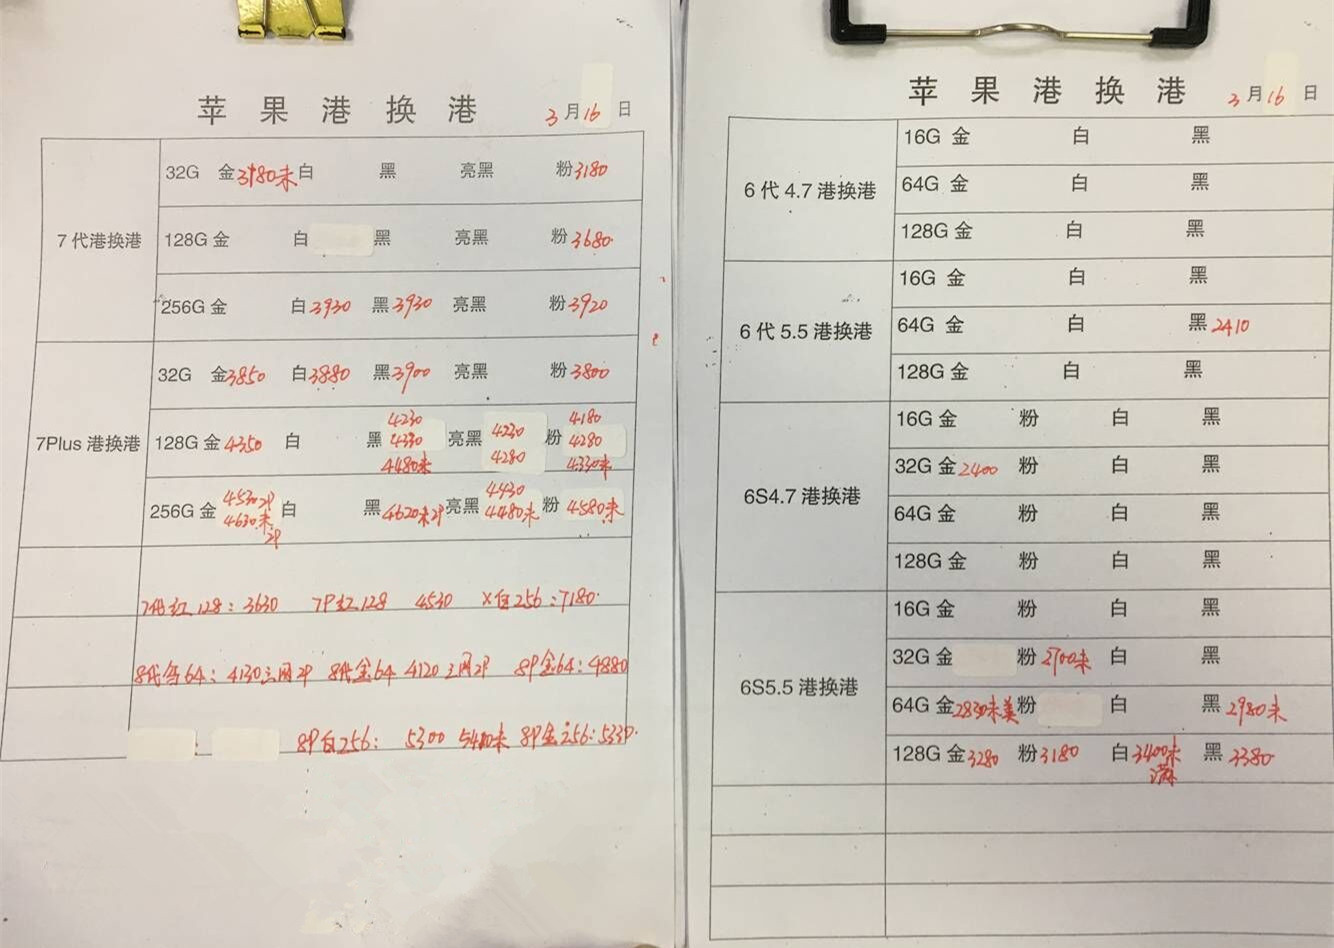 苹果港换港 3月16日
7代港换港
32G 金3980未 白 黑 亮黑 粉3180
128G 金 白 黑 亮黑 粉3680
256G 金 白3930 黑3930 亮黑 粉3920
7Plus 港换港
32G 金3850 白3880 黑3900 亮黑 粉3800
128G 金4350 白 黑4230 4330 4480未 亮黑4230 4280 粉4180 4280 4330未
256G 金4530 2P 4630未 2P 白 黑4620未2P 亮黑4430 4480未 粉4580未
7代红128：3630 7P红128 4530 X白256：7180
8代 64：4130三网2P 8代金64 4120三网2P 8P金64：4880
8P白256： 5300 5400未 8P金 256：5330
苹果港换港 3月16日
6代4.7港换港
16G 金 白 黑
64G 金 白 黑
128G 金 白 黑
6代5.5港换港
16G 金 白 黑
64G 金 白 黑2410
128G 金 白 黑
6S4.7港换港
16G 金 粉 白 黑
32G 金2400 粉 白 黑
64G 金 粉 白 黑
128G 金 粉 白 黑
6S5.5港换港
16G 金 粉 白 黑
32G 金 粉2700未 白 黑
64G 金2830未美 粉 白 黑2980未
128G 金3280 粉3180 白3400未 黑3380